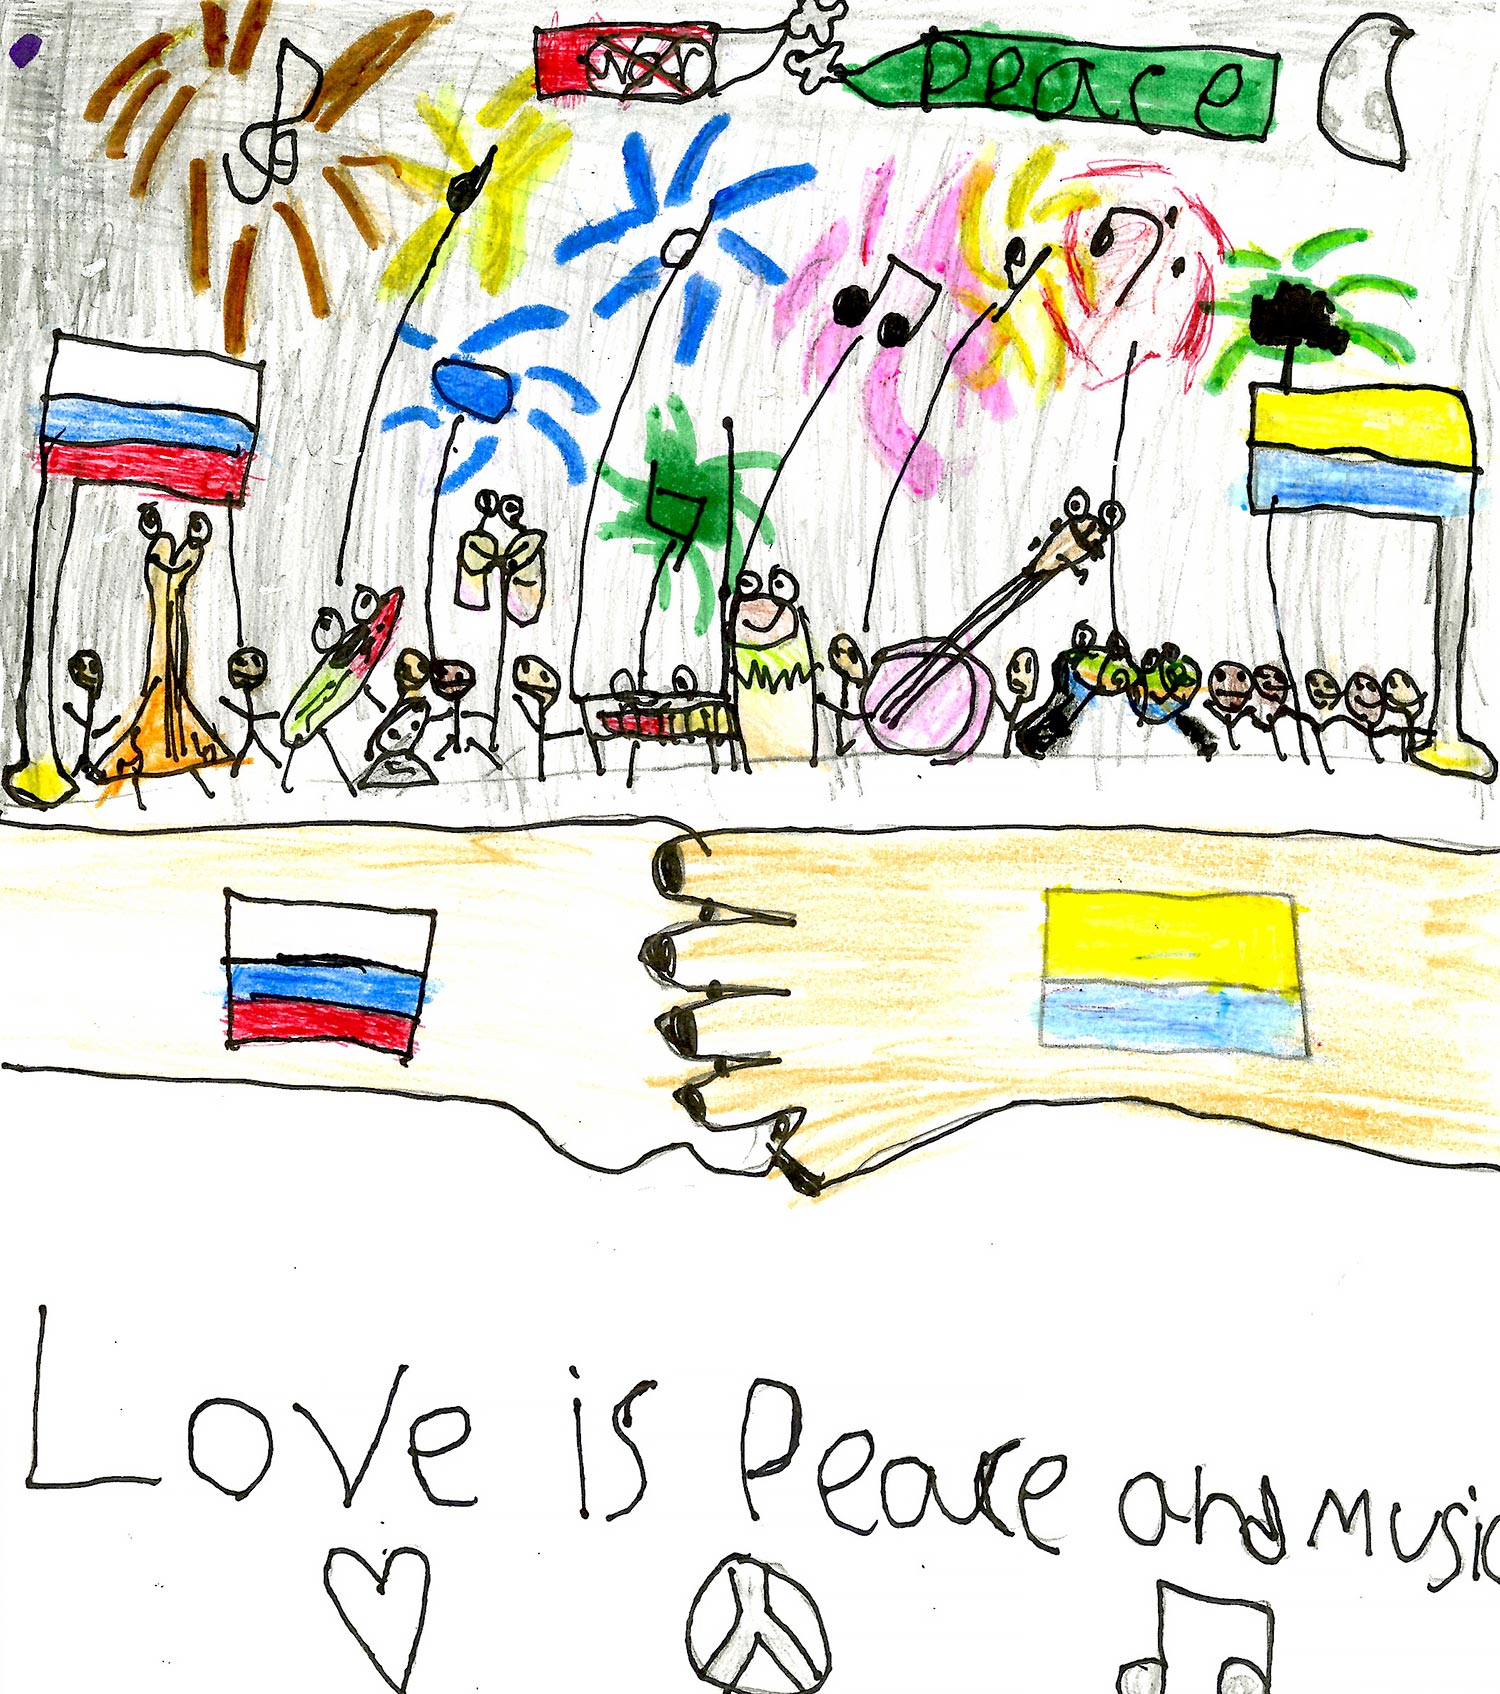 war
peace
Love is Peace and music